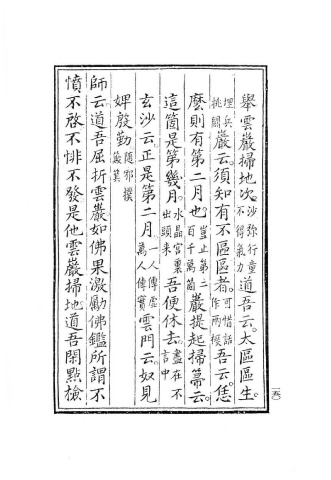 舉雲巖掃地次沙弥行童不得氣力道吾云太區區生
埋兵挑鬪巖云須知有不區區者可惜話作兩橛吾云恁
麽則有第二月也豈止第二百千萬箇巖提起掃箒云
這箇是第幾月水晶宮裏出頭來吾便休去盡在不言中
玄沙云正是第二月一人傳虛萬人傳實雲門云奴見
婢殷勤隨
師云道吾屈折雲巖如佛果激勵佛鑑所謂不
憤不啓不悱不發是他雲巖掃地道吾閑點檢